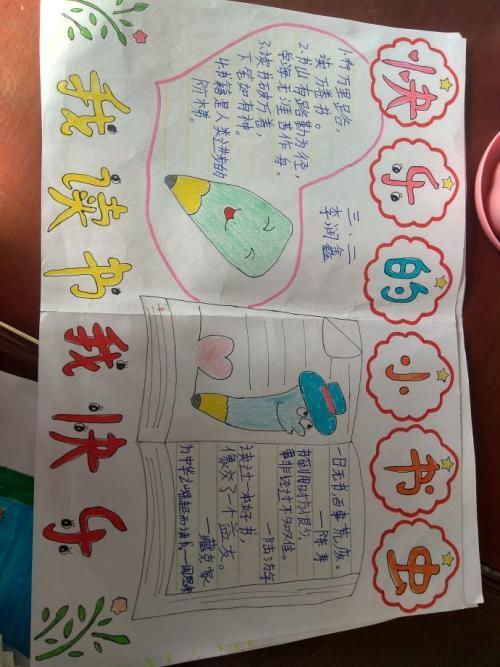 快乐的小书虫
1.行万里路,
读万卷书。
2.书山有路勤为径,
学海无涯苦作舟。
3.读书破万卷,
下笔如有神。
4.书籍是人类进步的
阶梯。
三、二
李润鑫
一日无书百事荒废。
—陈寿
书到用时方恨少,
事非经过不知难。
读过一本好书,
像交了一个益友。
—臧克家
为中华之崛起而读书。—周恩来
我读书我快乐